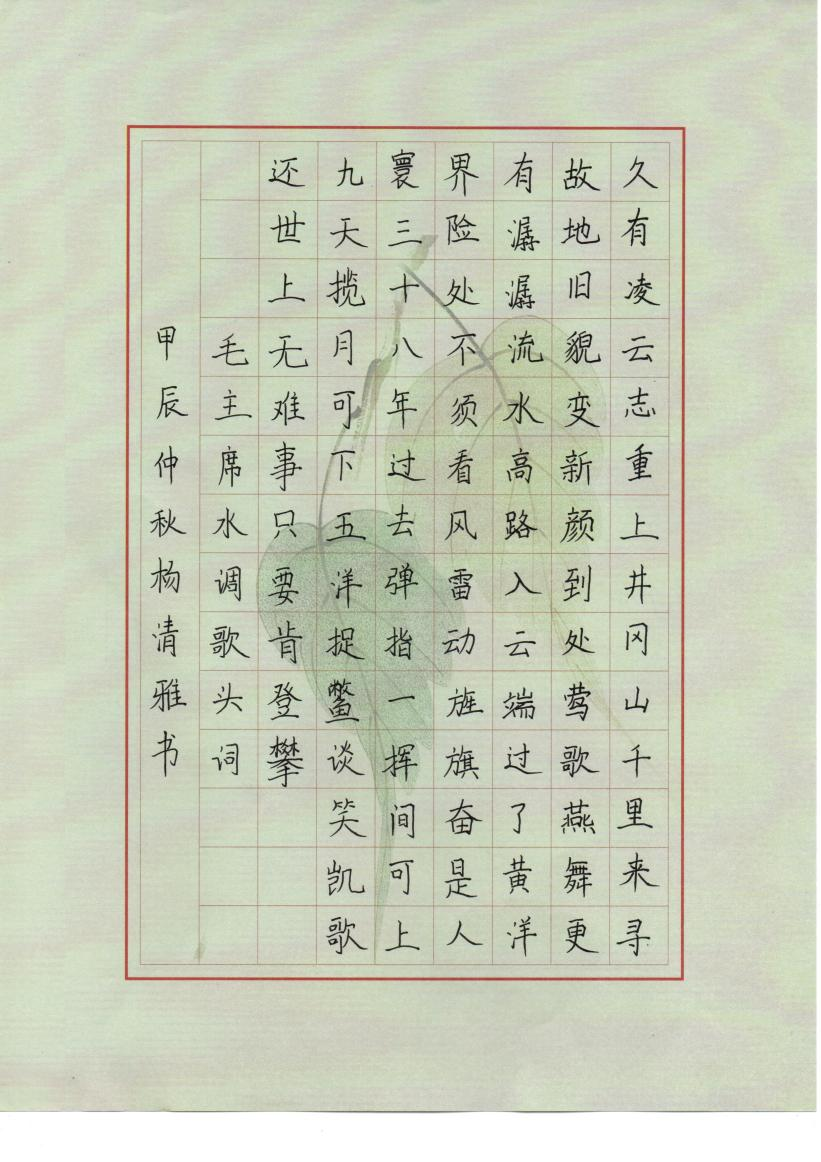 久有凌云志重上井冈山千里来寻
故地旧貌变新颜到处莺歌燕舞更
有潺潺流水高路入云端过了黄洋
界险处不须看风雷动旌旗奋是人
寰三十八年过去弹指一挥间可上
九天揽月可下五洋捉鳖谈笑凯歌
还世上无难事只要肯登攀
毛主席水调歌头词
甲辰仲秋杨清雅书